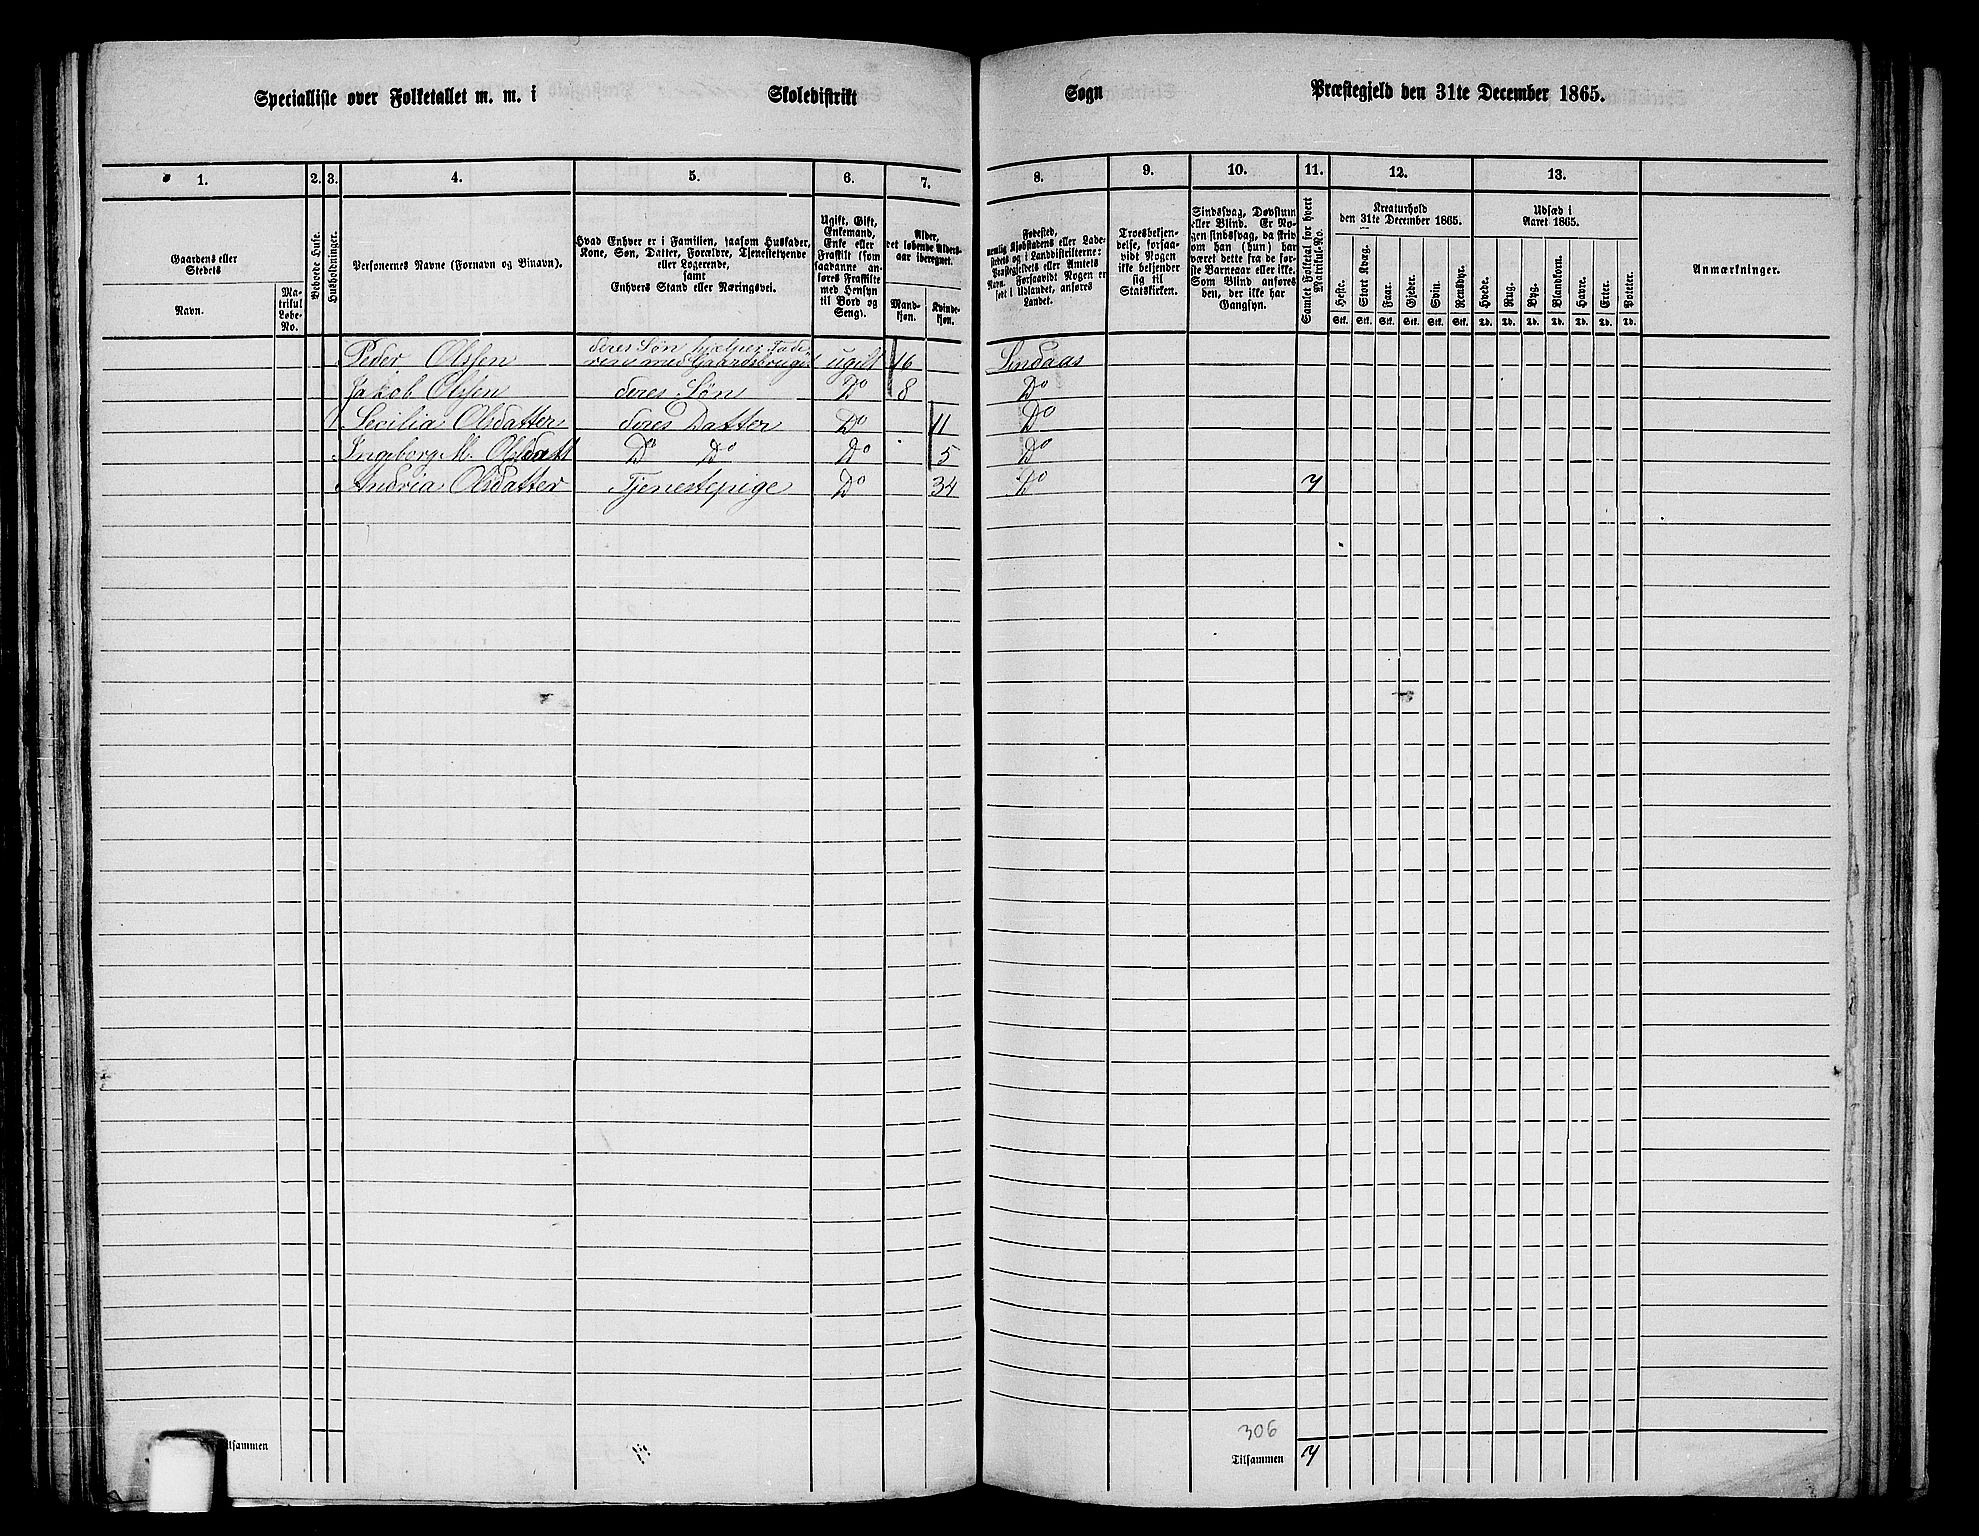 Specialliste over Folketallet m. m. i Skoledistrikt Sogn Præstegjeld den 31te December 1865.
1. 2. 3. 4. 5. 6. 7. 8. 9. 10. 11. 12. 13.
Gaardens eller Stedets
Navn.
Matrikul Løbe-No.
Beboede Huse.
Husholdninger.
Personernes Navne (Fornavn og Binavn).
Hvad Enhver er i Familien, saasom Husfader, Kone, Søn, Datter, Forældre, Tjenestetyende eller Logerende,
samt
Enhvers Stand eller Næringsvei.
Ugift, Gift, Enkemand, Enke eller Fraskilt (som saadanne anføres Fraskilte med Hensyn til Bord og Seng).
Alder, det løbende Alders-aar iberegnet.
Mand-kjøn.
Kvinde-kjøn.
Fødested, nemlig Kjøbstadens eller Ladestedets og i Landdistrikterne: Præstegjeldets eller Amtets Navn. Forsaavidt Nogen er født i Udlandet, anføres Landet.
Troesbekjendelse, forsaavidt Nogen ikke bekjender sig til Statskirken.
Sindssvag, Døvstum eller Blind. Er Nogen sindssvag, da skrives om han (hun) har været dette fra de første Barneaar eller ikke. Som Blind anføres den, der ikke har Gangsyn.
Samlet Folketal for hvert Matrikul-No.
Kreaturhold den 31te December 1865.
Heste. Stort Kvæg. Faar. Gjeder. Svin. Rensdyr.
Stk. Stk. Stk. Stk. Stk. Stk.
Udsæd i Aaret 1865.
Hvede. Rug. Byg. Blandkorn. Havre. Erter. Poteter.
Td. Td. Td. Td. Td. Td. Td.
Anmærkninger.
Peder Olssen deres Søn hjælper Fade-
ren med Gaardsbruget ugift 16 Lindaas
Jakob Olssen deres Søn Do 8 Do
Secilia Olsdatter deres Datter Do 11 Do
Ingeborg M. Olsdatt Do Do Do 5 Do
Andria Olsdatter Tjenestepige Do 34 Do 7
306
Tilsammen Tilsammen 7